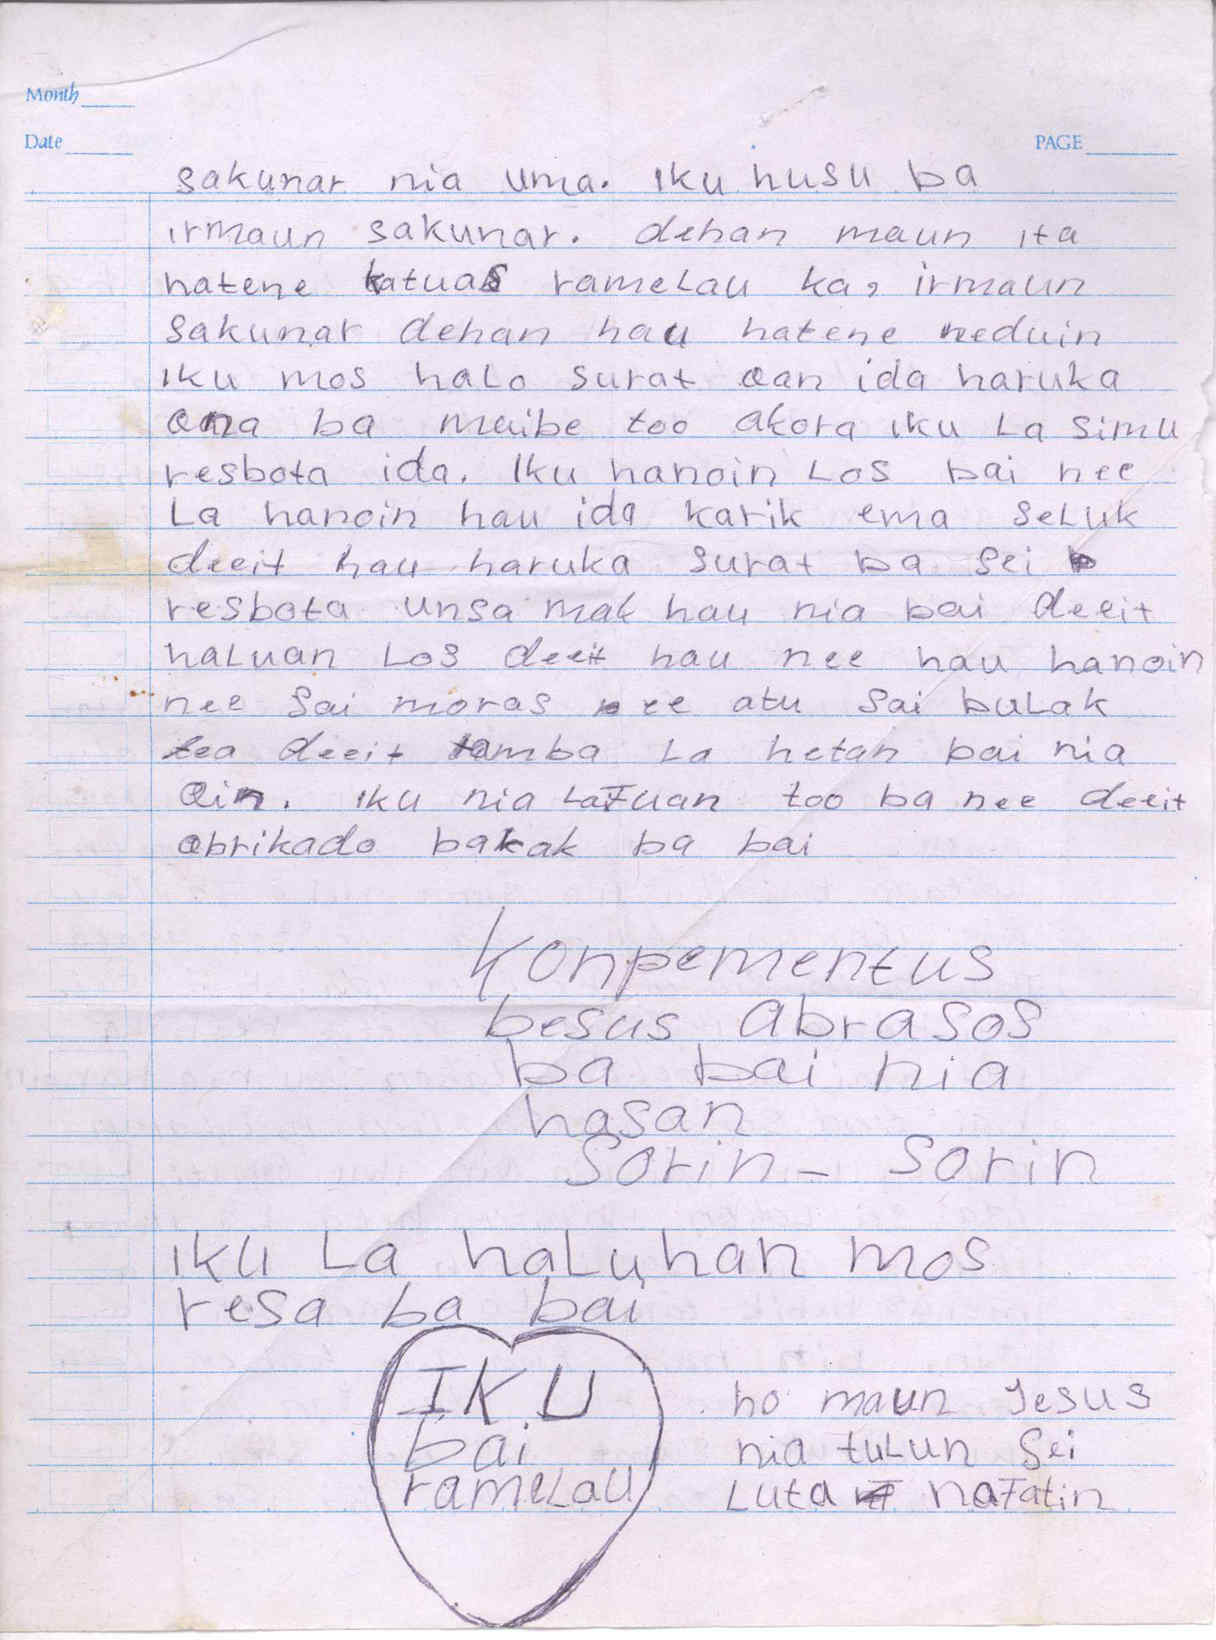 Month
Date
PAGE
sakunar nia uma. Iku husu ba
irmaun sakunar. dehan maun ita
hatene katuas rameLau ka, irmaun
sakunar dehan hau hatene neduin
iku mos haLo surat oan ida haruka
ona ba maibe too akora iku La simu
resbota ida. Iku hanoin Los bai nee
La hanoin hau ida karik ema seLuk
deeit hau haruka surat ba sei
resbota unsa mak hau nia bai deeit
haLuan Los deeit hau nee hau hanoin
nee sai moras nee atu sai buLak
tea deeit tamba La hetan bai nia
Oin. iku nia Lafuan too ba nee deeit
obrikado bakak ba bai
Konpementus
besus abrasos
ba bai nia
hasan
Sorin - Sorin
iku La haLuhan mos
resa ba bai
IKU
bai
rameLau
ho maun Jesus
nia tuLun sei
Luta nafatin